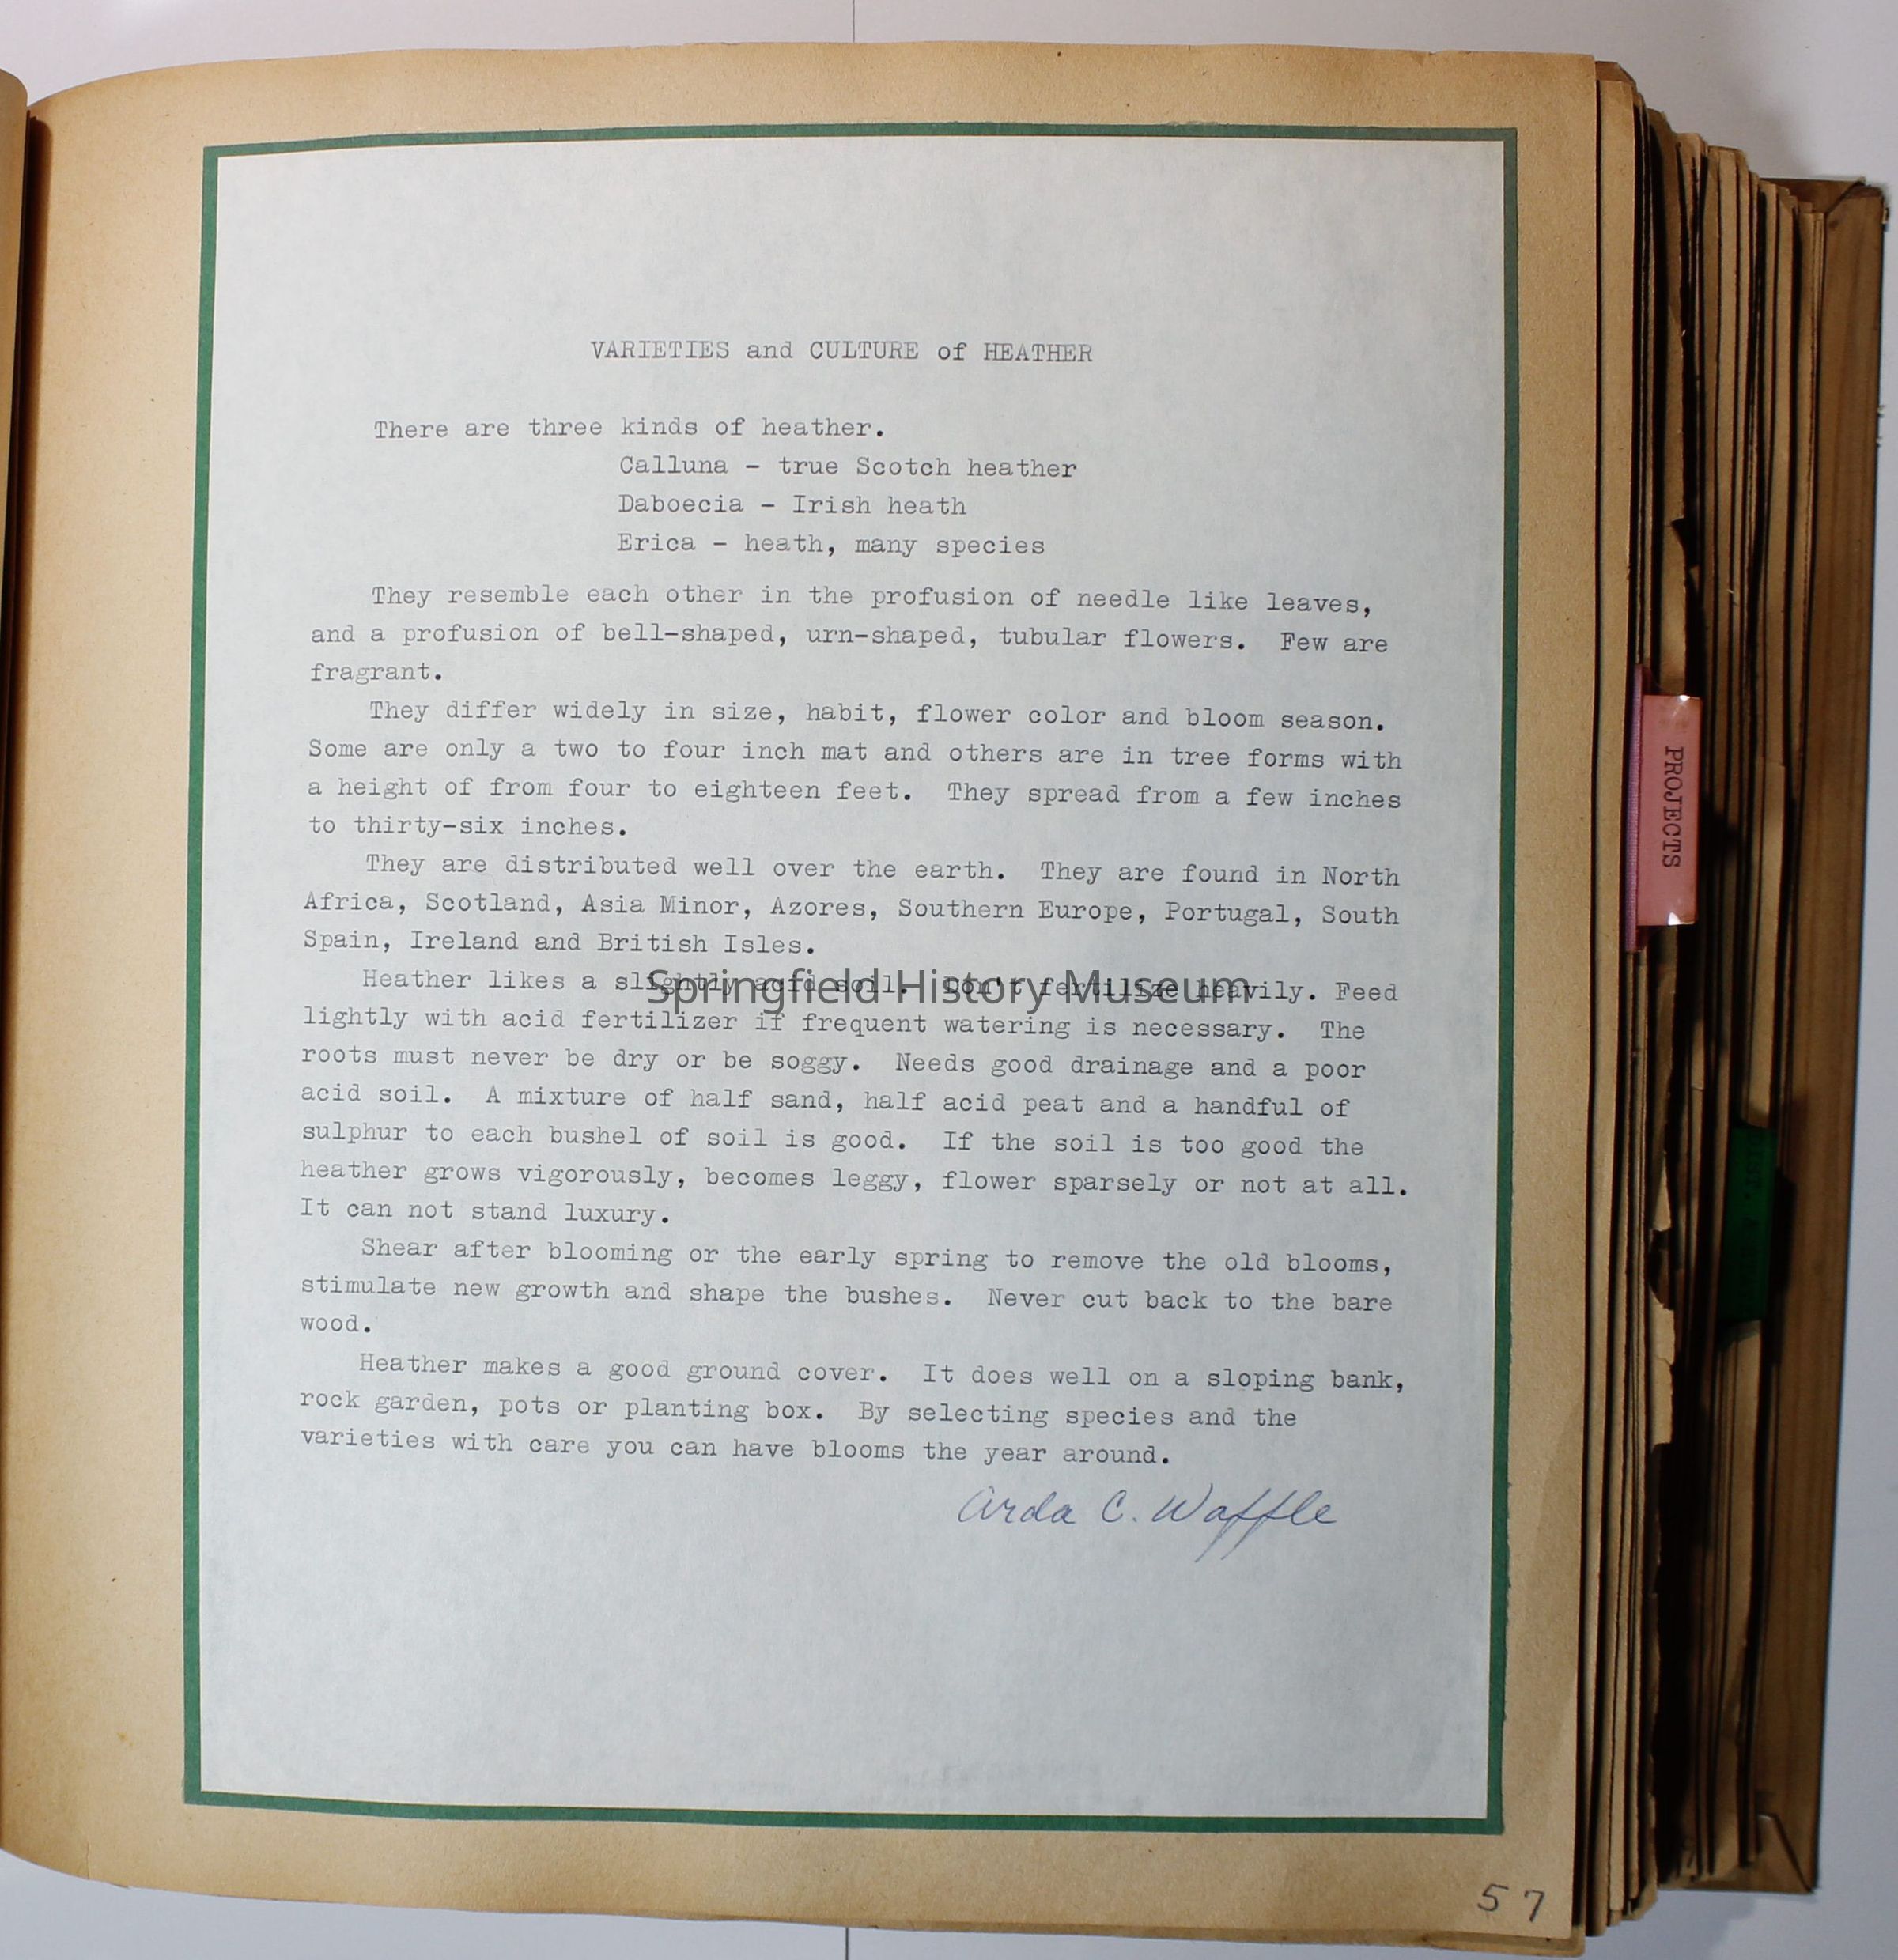 VARIETIES and CULTURE of HEATHER
There are three kinds of heather.
Calluna - true Scotch heather
Daboecia - Irish heath
Erica - heath, many species
They resemble each other in the profusion of needle like leaves,
and a profusion of bell-shaped, urn-shaped, tubular flowers.  Few are
fragrant.
They differ widely in size, habit, flower color and bloom season.
Some are only a two to four inch mat and others are in tree forms with
a height of from four to eighteen feet.  They spread from a few inches
to thirty-six inches.
They are distributed well over the earth.  They are found in North
Africa, Scotland, Asia Minor, Azores, Southern Europe, Portugal, South
Spain, Ireland and British Isles.
Heather likes a slightly acid soil.  Don't fertilize heavily. Feed
lightly with acid fertilizer if frequent watering is necessary.  The
roots must never be dry or be soggy.  Needs good drainage and a poor
acid soil.  A mixture of half sand, half acid peat and a handful of
sulphur to each bushel of soil is good.  If the soil is too good the
heather grows vigorously, becomes leggy, flower sparsely or not at all.
It can not stand luxury.
Shear after blooming or the early spring to remove the old blooms,
stimulate new growth and shape the bushes.  Never cut back to the bare
wood.
Heather makes a good ground cover.  It does well on a sloping bank,
rock garden, pots or planting box.  By selecting species and the
varieties with care you can have blooms the year around.
Arda C. Waffle
57
PROJECTS
Springfield History Museum